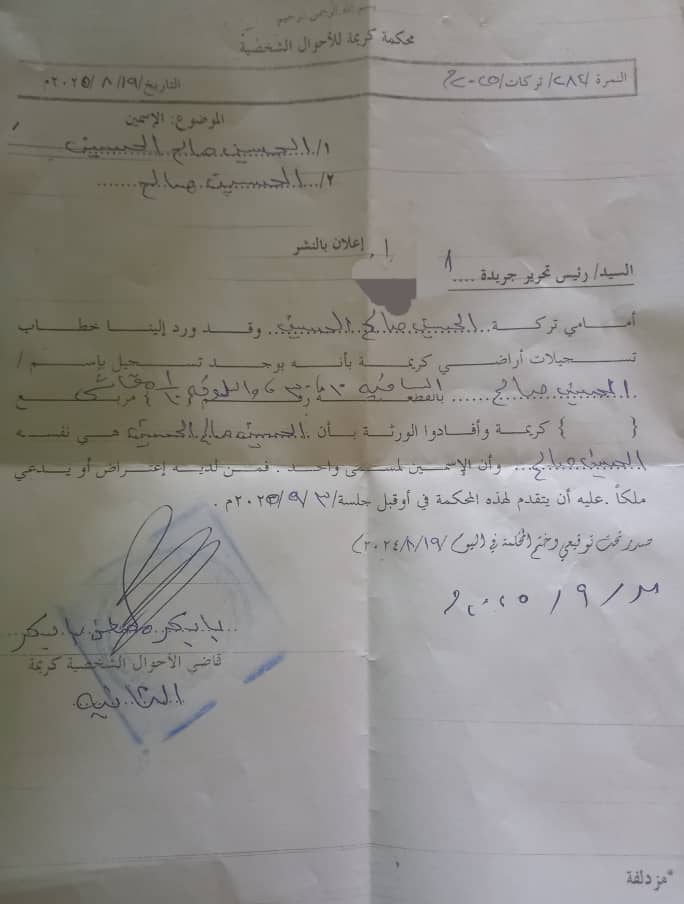 بسم الله الرحمن الرحيم
محكمة كريمة للأحوال الشخصية
النمرة /٢٨٢/ تركات/٢٠٢٥م
التاريخ/١٩/ ٨ /٢٠٢٥م
الموضوع: الإسمين
١/ الحسين صالح الحسين
٢/... الحسين صالح.......
إعلان بالنشر
السيد/ رئيس تحرير جريدة ....
أمامي تركة.. الحسين صالح الحسين.. وقد ورد إلينا خطاب
تسجيلات أراضي كريمة بأنه يوجد تسجيل بإسم /
الحسين صالح ...... بالقطعة رقم { } مربع
{ } كريمة وأفادوا الورثة بأن الحسين صالح الحسين هي نفسه
الحسين صالح... وأن الإسمين لمسمى واحد . فمن لديه إعتراض أو يدعي
ملكاً .عليه أن يتقدم لهذه المحكمة في أوقبل جلسة/٣/ ٩/ ٢٠٢٥م .
صدر تحت توقيعي وختم المحكمة في اليوم /١٩/ ٨/ ٢٠٢٤)
٣ / ٩ / ٢٠٢٥م
بابكر بابكر
قاضي الأحوال الشخصية كريمة
الثانيه
*مزدلفة